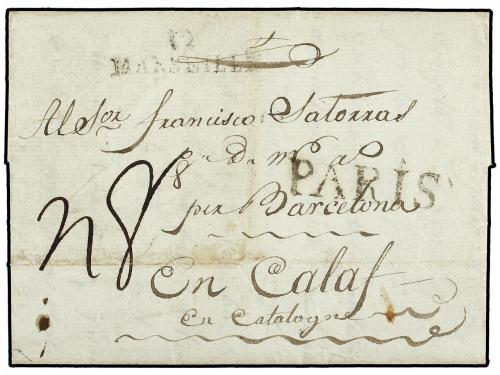 12
MARSEILLE
Al Sor. Francisco Satorras
PARIS
per Barcelona
28
En Calaf
En Catalogne